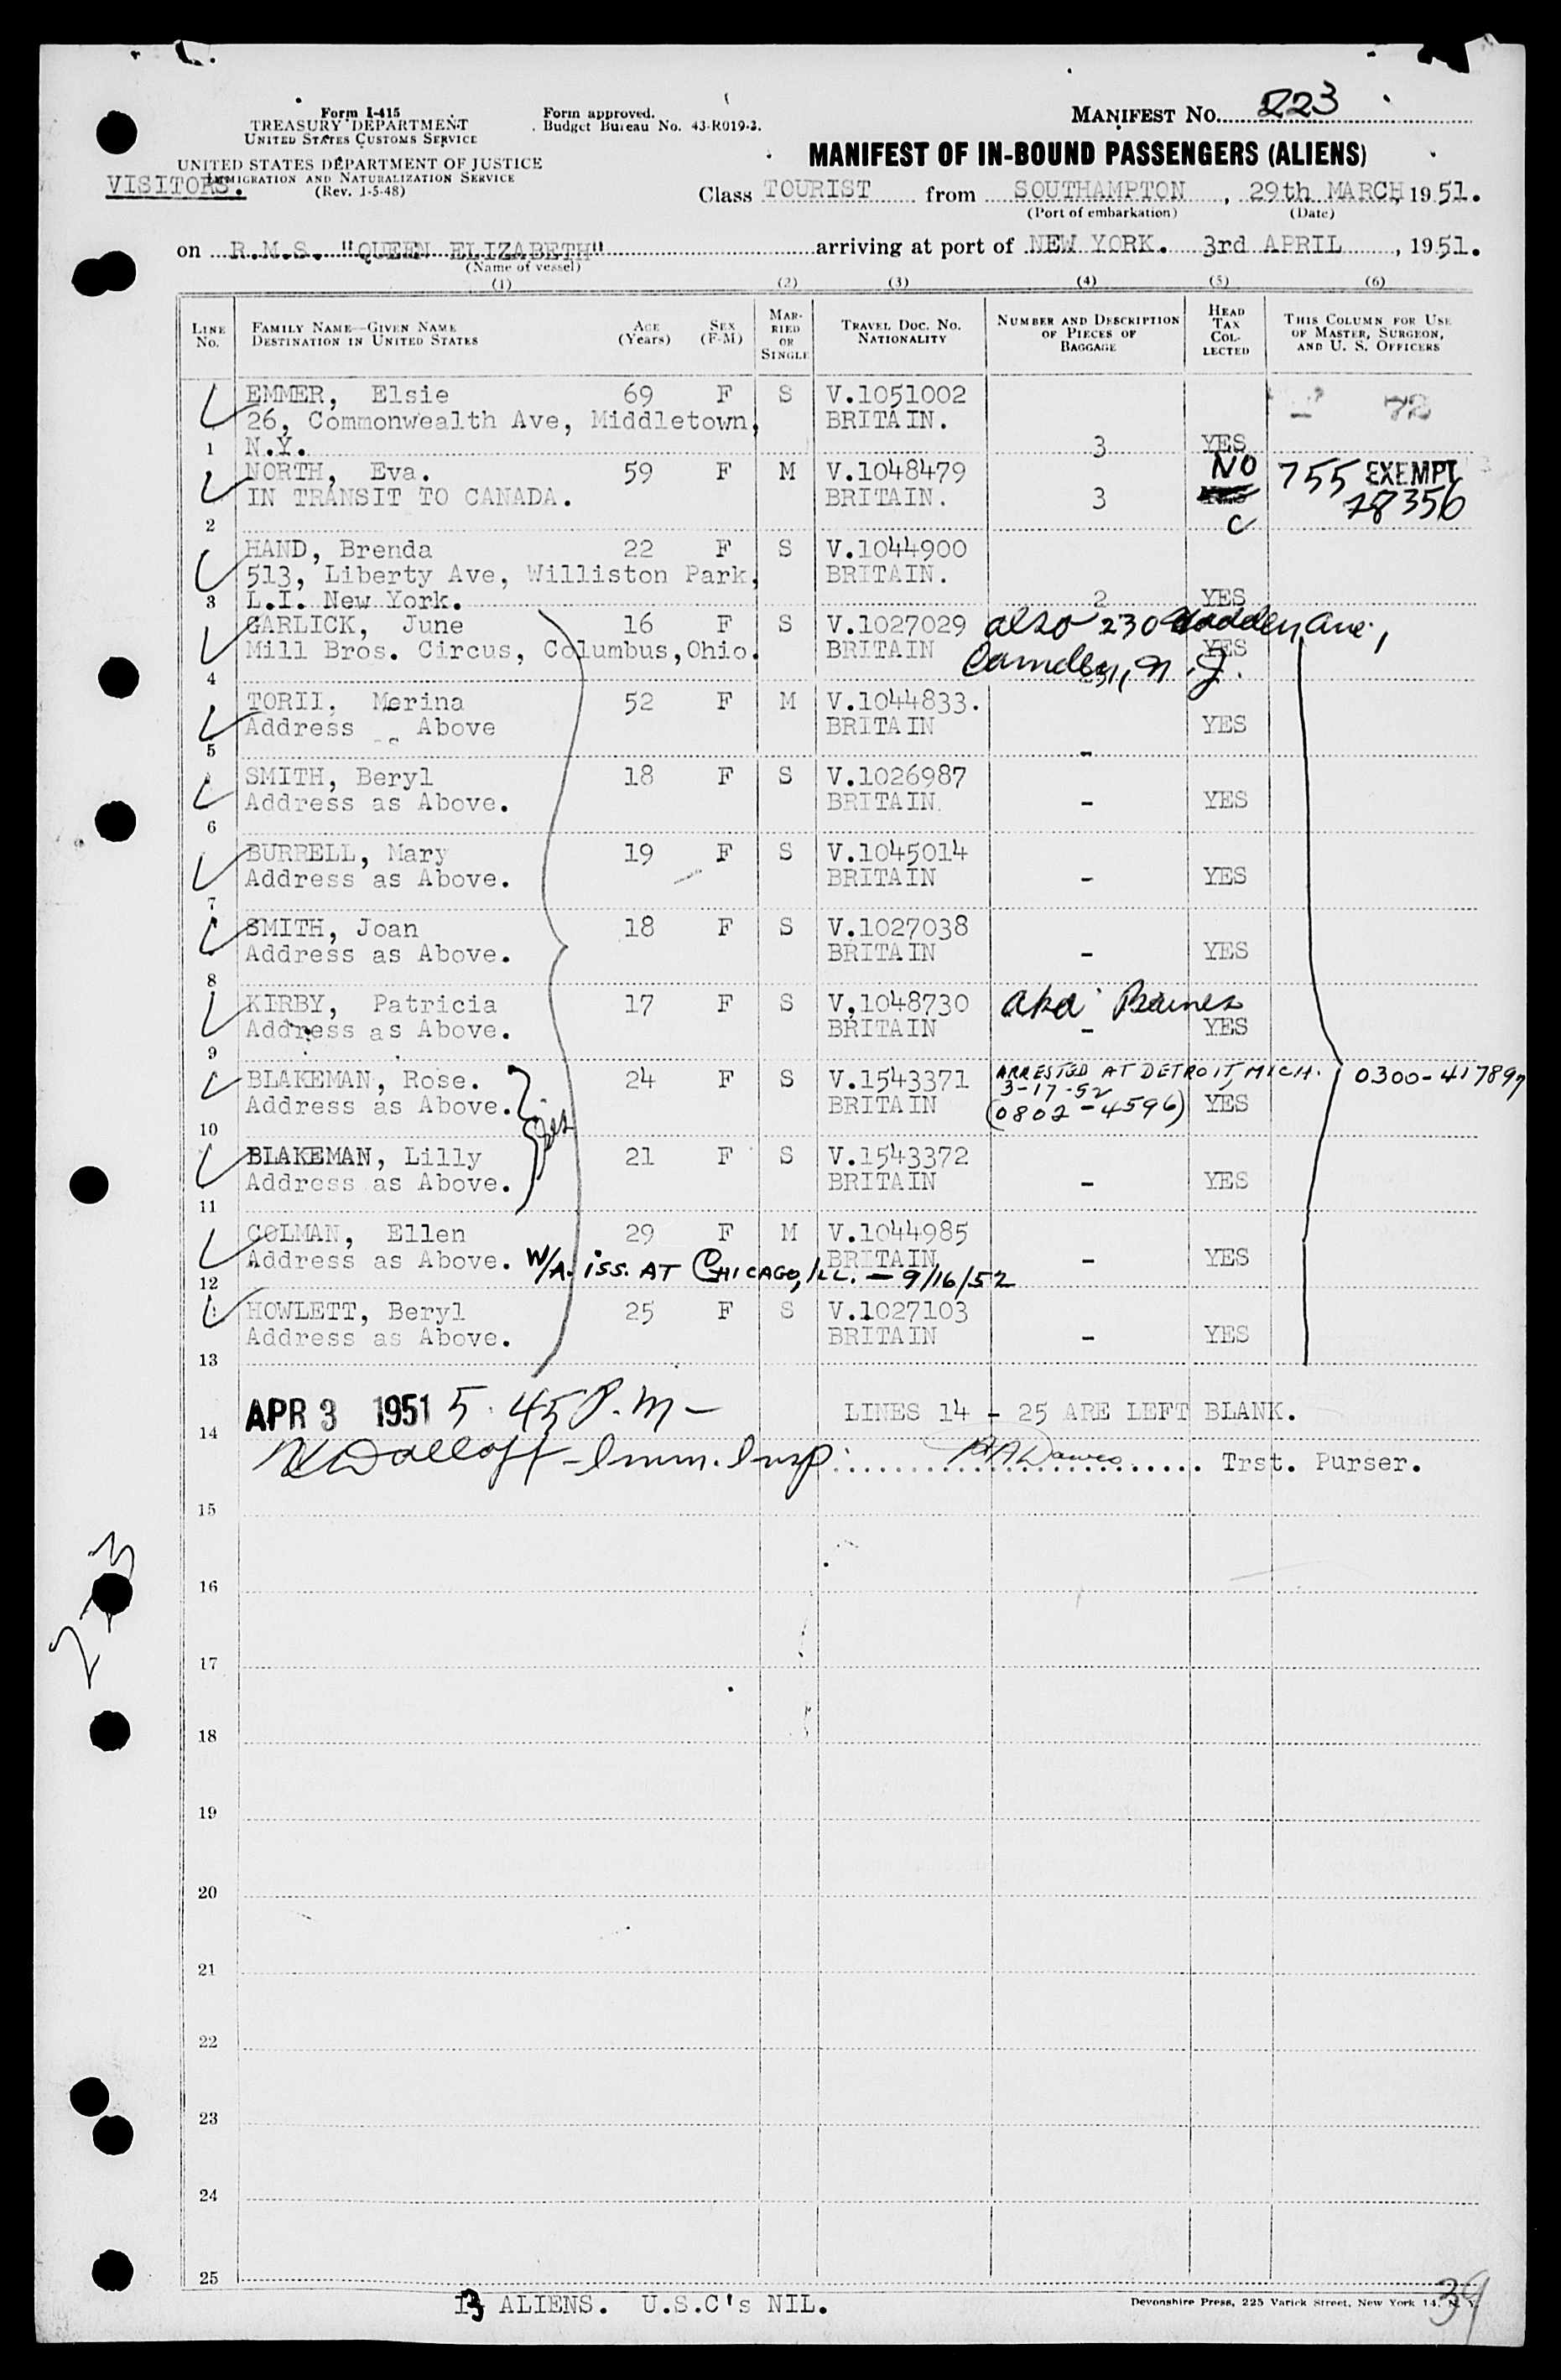 Form I-415
TREASURY DEPARTMENT
UNITED STATES CUSTOMS SERVICE
UNITED STATES DEPARTMENT OF JUSTICE
IMMIGRATION AND NATURALIZATION SERVICE
(Rev. 1-5-48)
VISITORS.
Form approved.
Budget Bureau No. 43-R019-3.
MANIFEST NO. 223
MANIFEST OF IN-BOUND PASSENGERS (ALIENS)
Class TOURIST from SOUTHAMPTON, 29th MARCH, 1951.
(Port of embarkation) (Date)
on R.M.S. "QUEEN ELIZABETH" arriving at port of NEW YORK. 3rd APRIL, 1951.
(Name of vessel)
(1) (2) (3) (4) (5) (6)
LINE NO. FAMILY NAME—GIVEN NAME DESTINATION IN UNITED STATES AGE (Years) SEX (F-M) MARRIED OR SINGLE TRAVEL DOC. NO. NATIONALITY NUMBER AND DESCRIPTION OF PIECES OF BAGGAGE HEAD TAX COLLECTED THIS COLUMN FOR USE OF MASTER, SURGEON, AND U. S. OFFICERS
EMMER, Elsie 69 F S V.1051002 72
26, Commonwealth Ave, Middletown, BRITAIN.
1 N.Y. 3 YES
NORTH, Eva. 59 F M V.1048479 NO 755 EXEMPT
IN TRANSIT TO CANADA. BRITAIN. 3 28356
2 C
HAND, Brenda 22 F S V.1044900
513, Liberty Ave, Williston Park, BRITAIN.
3 L.I. New York. 2 YES
GARLICK, June 16 F S V.1027029 also 230 Haddon Ave.,
Mill Bros. Circus, Columbus, Ohio. BRITAIN Camden, N.J. YES
4
TORII, Merina 52 F M V.1044833.
Address Above BRITAIN YES
5 -
SMITH, Beryl 18 F S V.1026987
Address as Above. BRITAIN. - YES
6
BURRELL, Mary 19 F S V.1045014
Address as Above. BRITAIN - YES
7
SMITH, Joan 18 F S V.1027038
Address as Above. BRITAIN - YES
8
KIRBY, Patricia 17 F S V.1048730 aka Baines
Address as Above. BRITAIN - YES
9
BLAKEMAN, Rose. 24 F S V.1543371 ARRESTED AT DETROIT, MICH. 0300-417897
3-17-52
Address as Above. BRITAIN (0802-4596) YES
10
BLAKEMAN, Lilly 21 F S V.1543372
Address as Above. BRITAIN - YES
11
COLMAN, Ellen 29 F M V.1044985
Address as Above. W/A. iss. AT CHICAGO, ILL. - 9/16/52 BRITAIN - YES
12
HOWLETT, Beryl 25 F S V.1027103
Address as Above. BRITAIN - YES
13
APR 3 1951 5.45 P.M- LINES 14 - 25 ARE LEFT BLANK.
14
Imm. Insp. Trst. Purser.
15
16
223
17
18
19
20
21
22
23
24
25
13 ALIENS. U.S.C's NIL.
Devonshire Press, 225 Varick Street, New York 14, N. Y.
39